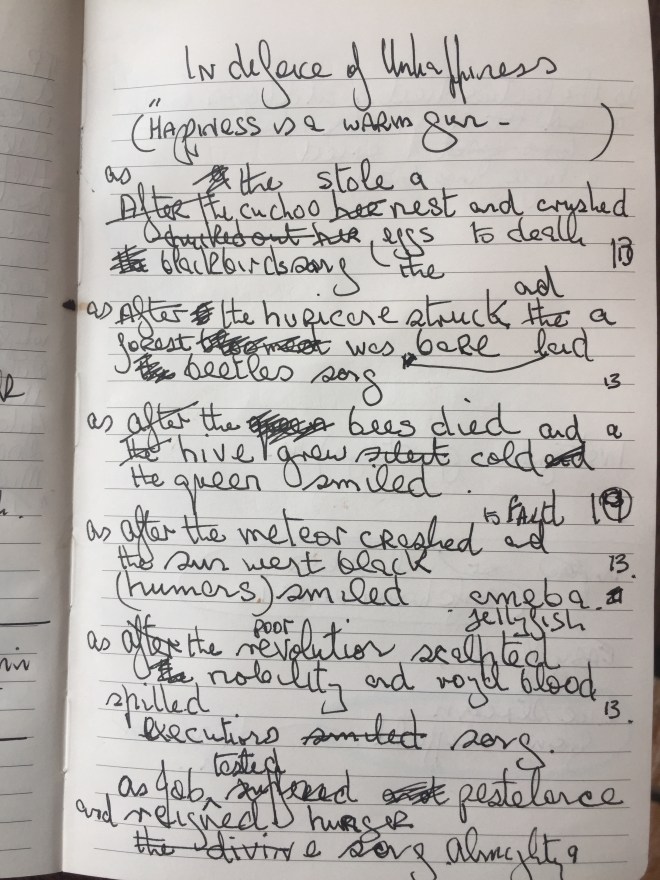 In defence of Unhappiness
("Happiness is a warm gun - )
as the stole a
After the cuchoo her nest and cryshed
eggs to death
blackbirds song the 13
and
as After the huricane struck the a
forest was bare land
beetles song 13
as after the bees died and a
the hive grew silent cold and
the queen smiled.
to Earth
as after the meteor crashed and
the sun went black 13.
(humans) smiled ameba.
jellyfish
poor
as after the revolution scalpted
nobility and royal blood
spilled 13.
executions smiled song.
tested
as Job, suffered pestelance
and reigned hunger
the divine song almighty